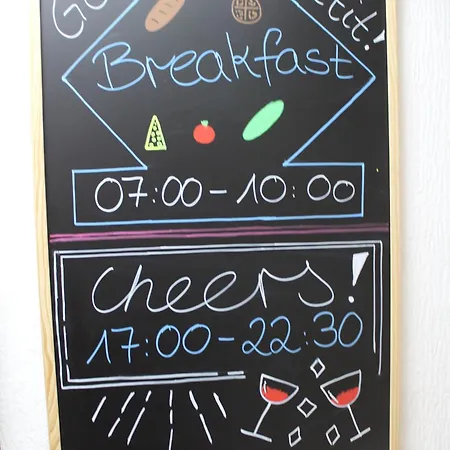 Breakfast
07:00-10:00
Cheers!
17:00-22:30